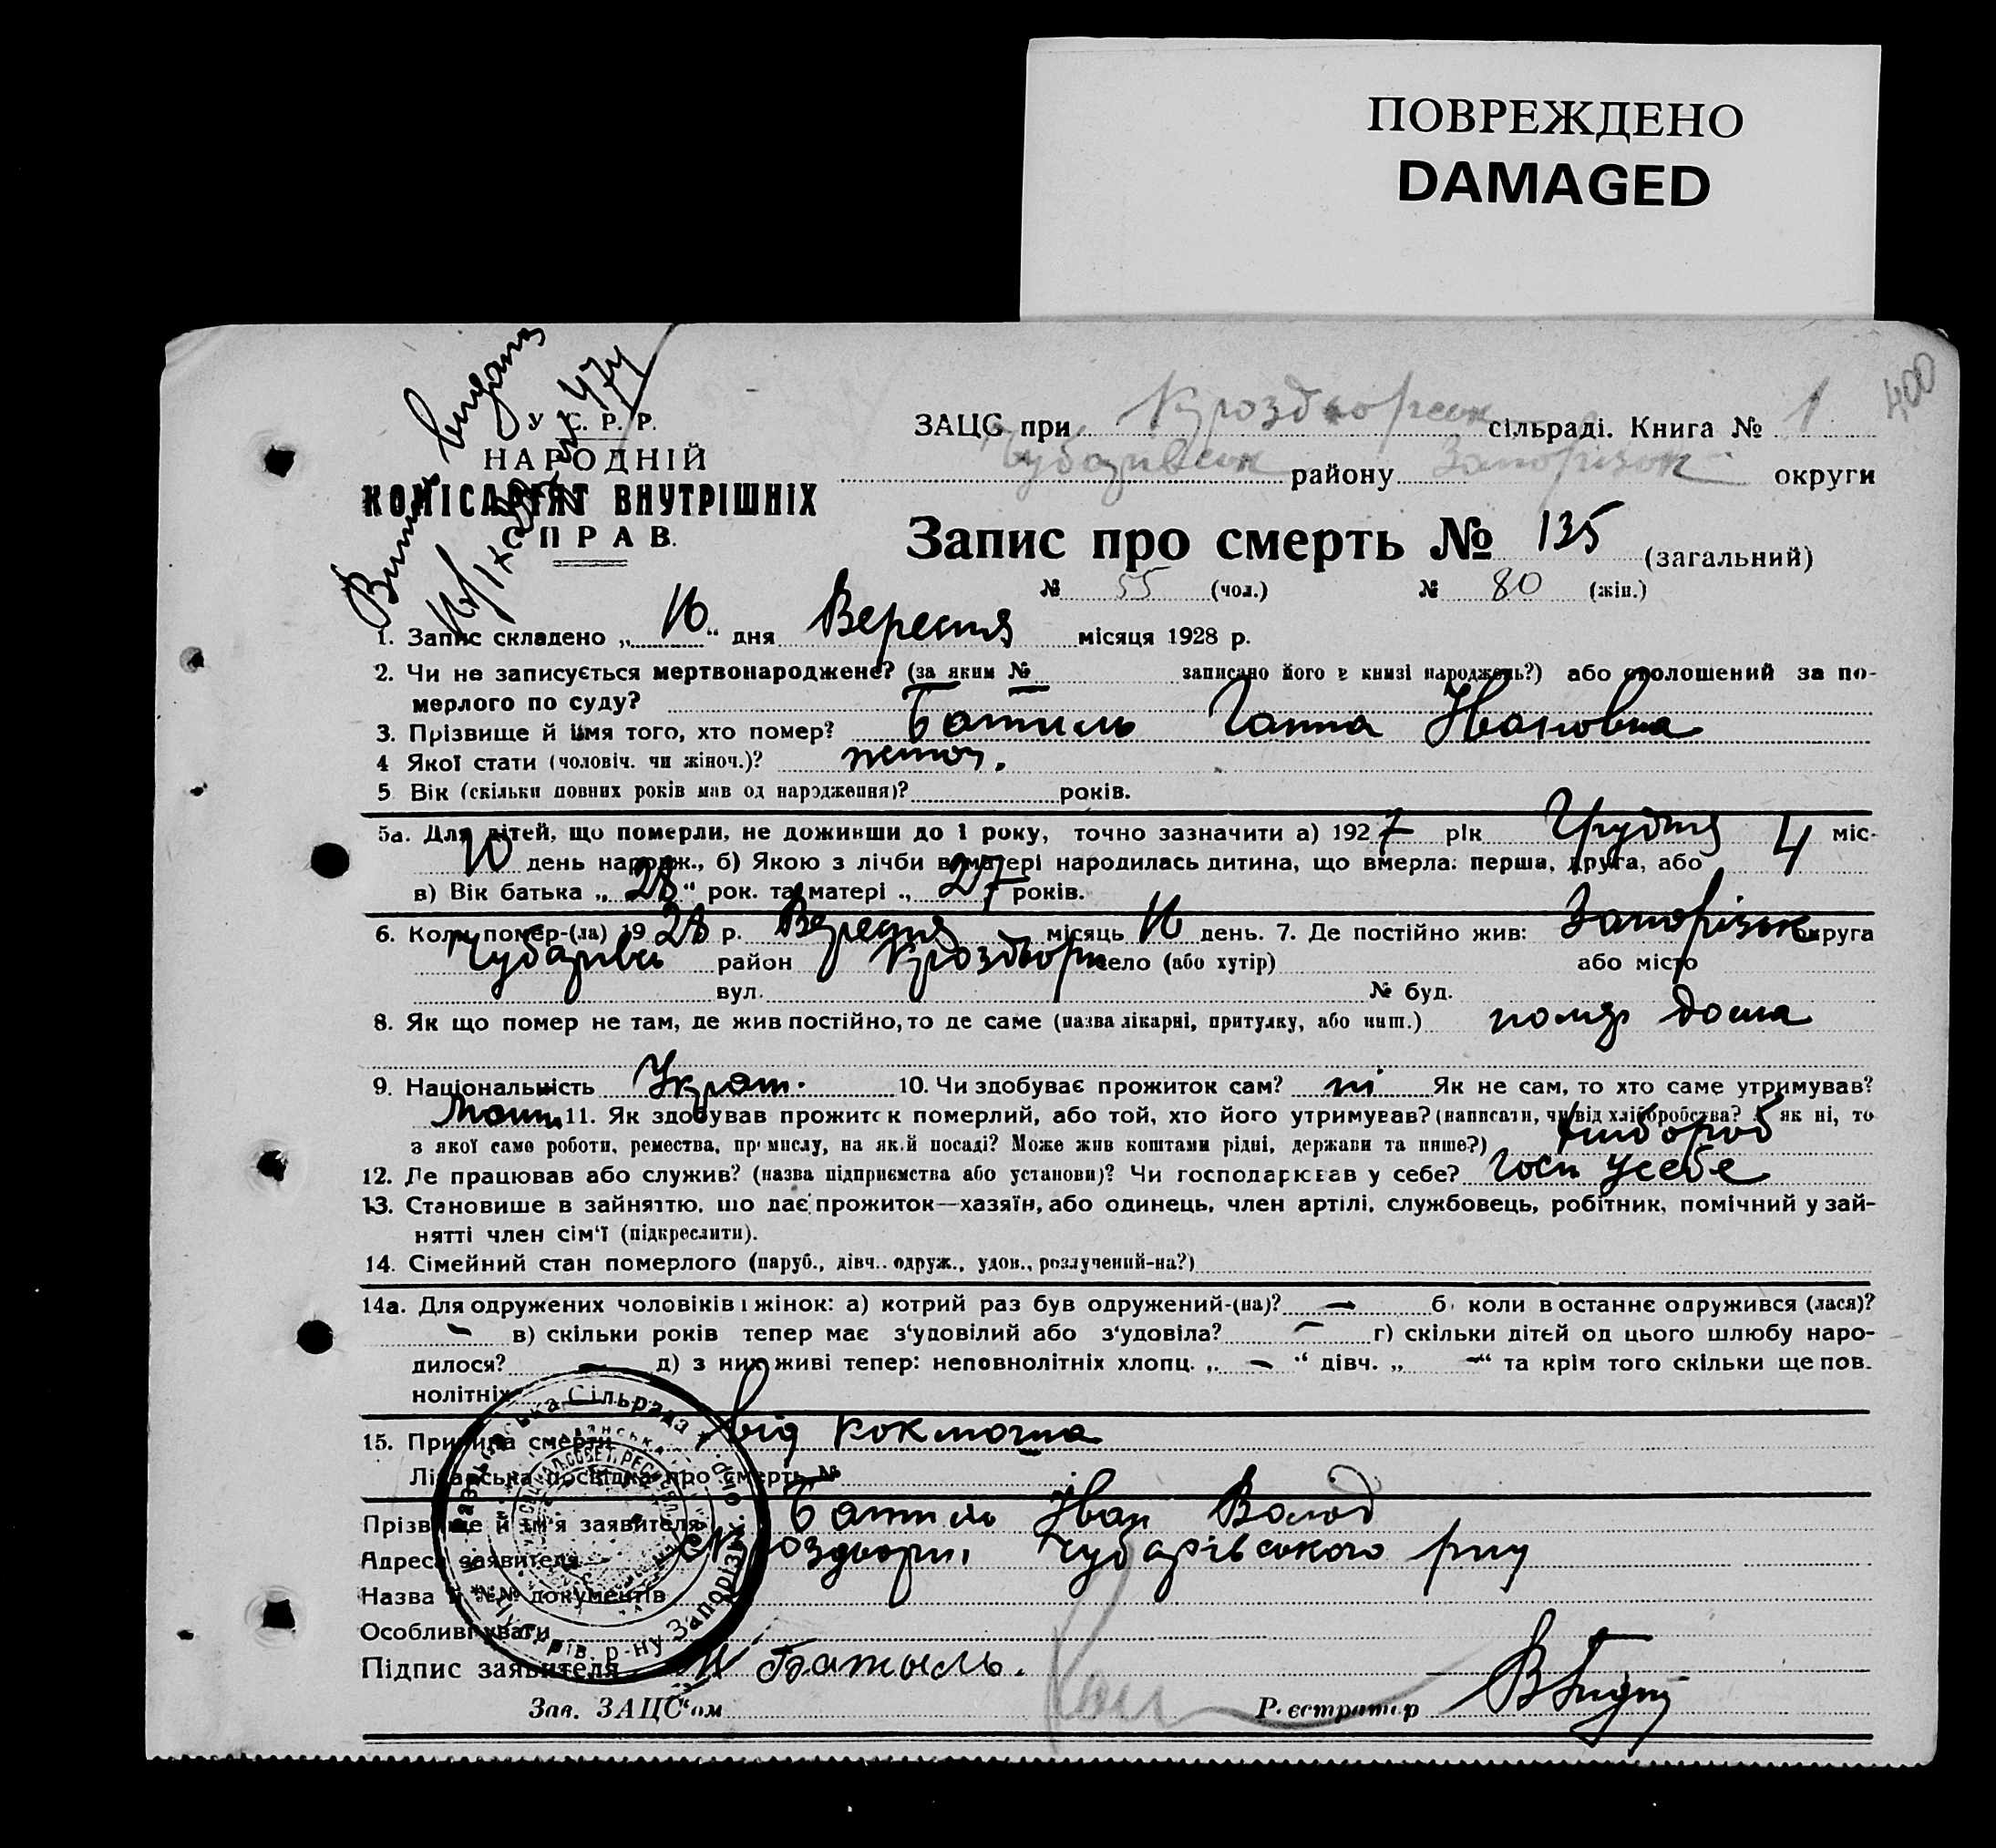 ПОВРЕЖДЕНО
DAMAGED
400
Витяг видано
У. С. Р. Р.
НАРОДНІЙ
КОМІСАРІЯТ ВНУТРІШНІХ
СПРАВ.
ЗАЦС при сільраді. Книга № 1
Чубарівськ району Запорізьк округи
Запис про смерть № 135 (загальний)
№ 55 (чол.) № 80 (жін.)
1. Запис складено „16“ дня Вересня місяця 1928 р.
2. Чи не записується мертвонароджене? (за яким № записано його в книзі народжень?) або оголошений за по-
мерлого по суду?
3. Прізвище й імя того, хто помер? Батиль Ганна Ивановна
4 Якої стати (чоловіч. чи жіноч.)? женоч.
5 Вік (скільки повних років мав од народження)? років.
5а. Для дітей, що померли, не доживши до 1 року, точно зазначити а) 1927 рік Грудня міс-
10 день народж., б) Якою з лічби в матері народилась дитина, що вмерла: перша, друга, або 4
в) Вік батька „28“ рок. та матері „27 років.
6. Коли помер-(ла) 1928 р. Вересня місяць 16 день. 7. Де постійно жив: Запорізьк округа
Чубарівсь район село (або хутір) або місто
вул. № буд.
8. Як що помер не там, де жив постійно, то де саме (назва лікарні, притулку, або инш.) дома
9. Національність Украин. 10. Чи здобуває прожиток сам? ні Як не сам, то хто саме утримував?
11. Як здобував прожиток померлий, або той, хто його утримував? (написати, чи від хліборобства? А як ні, то
з якої саме роботи, ремества, промислу, на якій посаді? Може жив коштами рідні, держави та инше?) хлібороб
12. Де працював або служив? (назва підприємства або установи)? Чи господарював у себе? Госп у себе
13. Становище в зайнятто, що дає прожиток—хазяїн, або одинець, член артілі, службовець, робітник, помічний у зай-
нятті член сім'ї (підкреслити).
14. Сімейний стан померлого (паруб., дівч.. одруж., удов., розлучений-на?)
14а. Для одружених чоловіків і жінок: а) котрий раз був одружений-(на)? — б) коли востаннє одружився (лася)?
— в) скільки років тепер має з'удовілий або з'удовіла? — г) скільки дітей од цього шлюбу наро-
дилося? — д) з них живі тепер: неповнолітніх хлопц. „ — “ дівч. „ —“ та крім того скільки ще пов-
нолітніх
15. Причина смерти від коклюша
Лікарська посвідка про смерть №
Прізвище й ім'я заявителя Батиль Іван Волод
Адреса заявителя Чубарівського р-ну
Назва й №№ документів
Особливі уваги
Підпис заявителя И Батыль.
Зав. ЗАЦС'ом Реєстратор